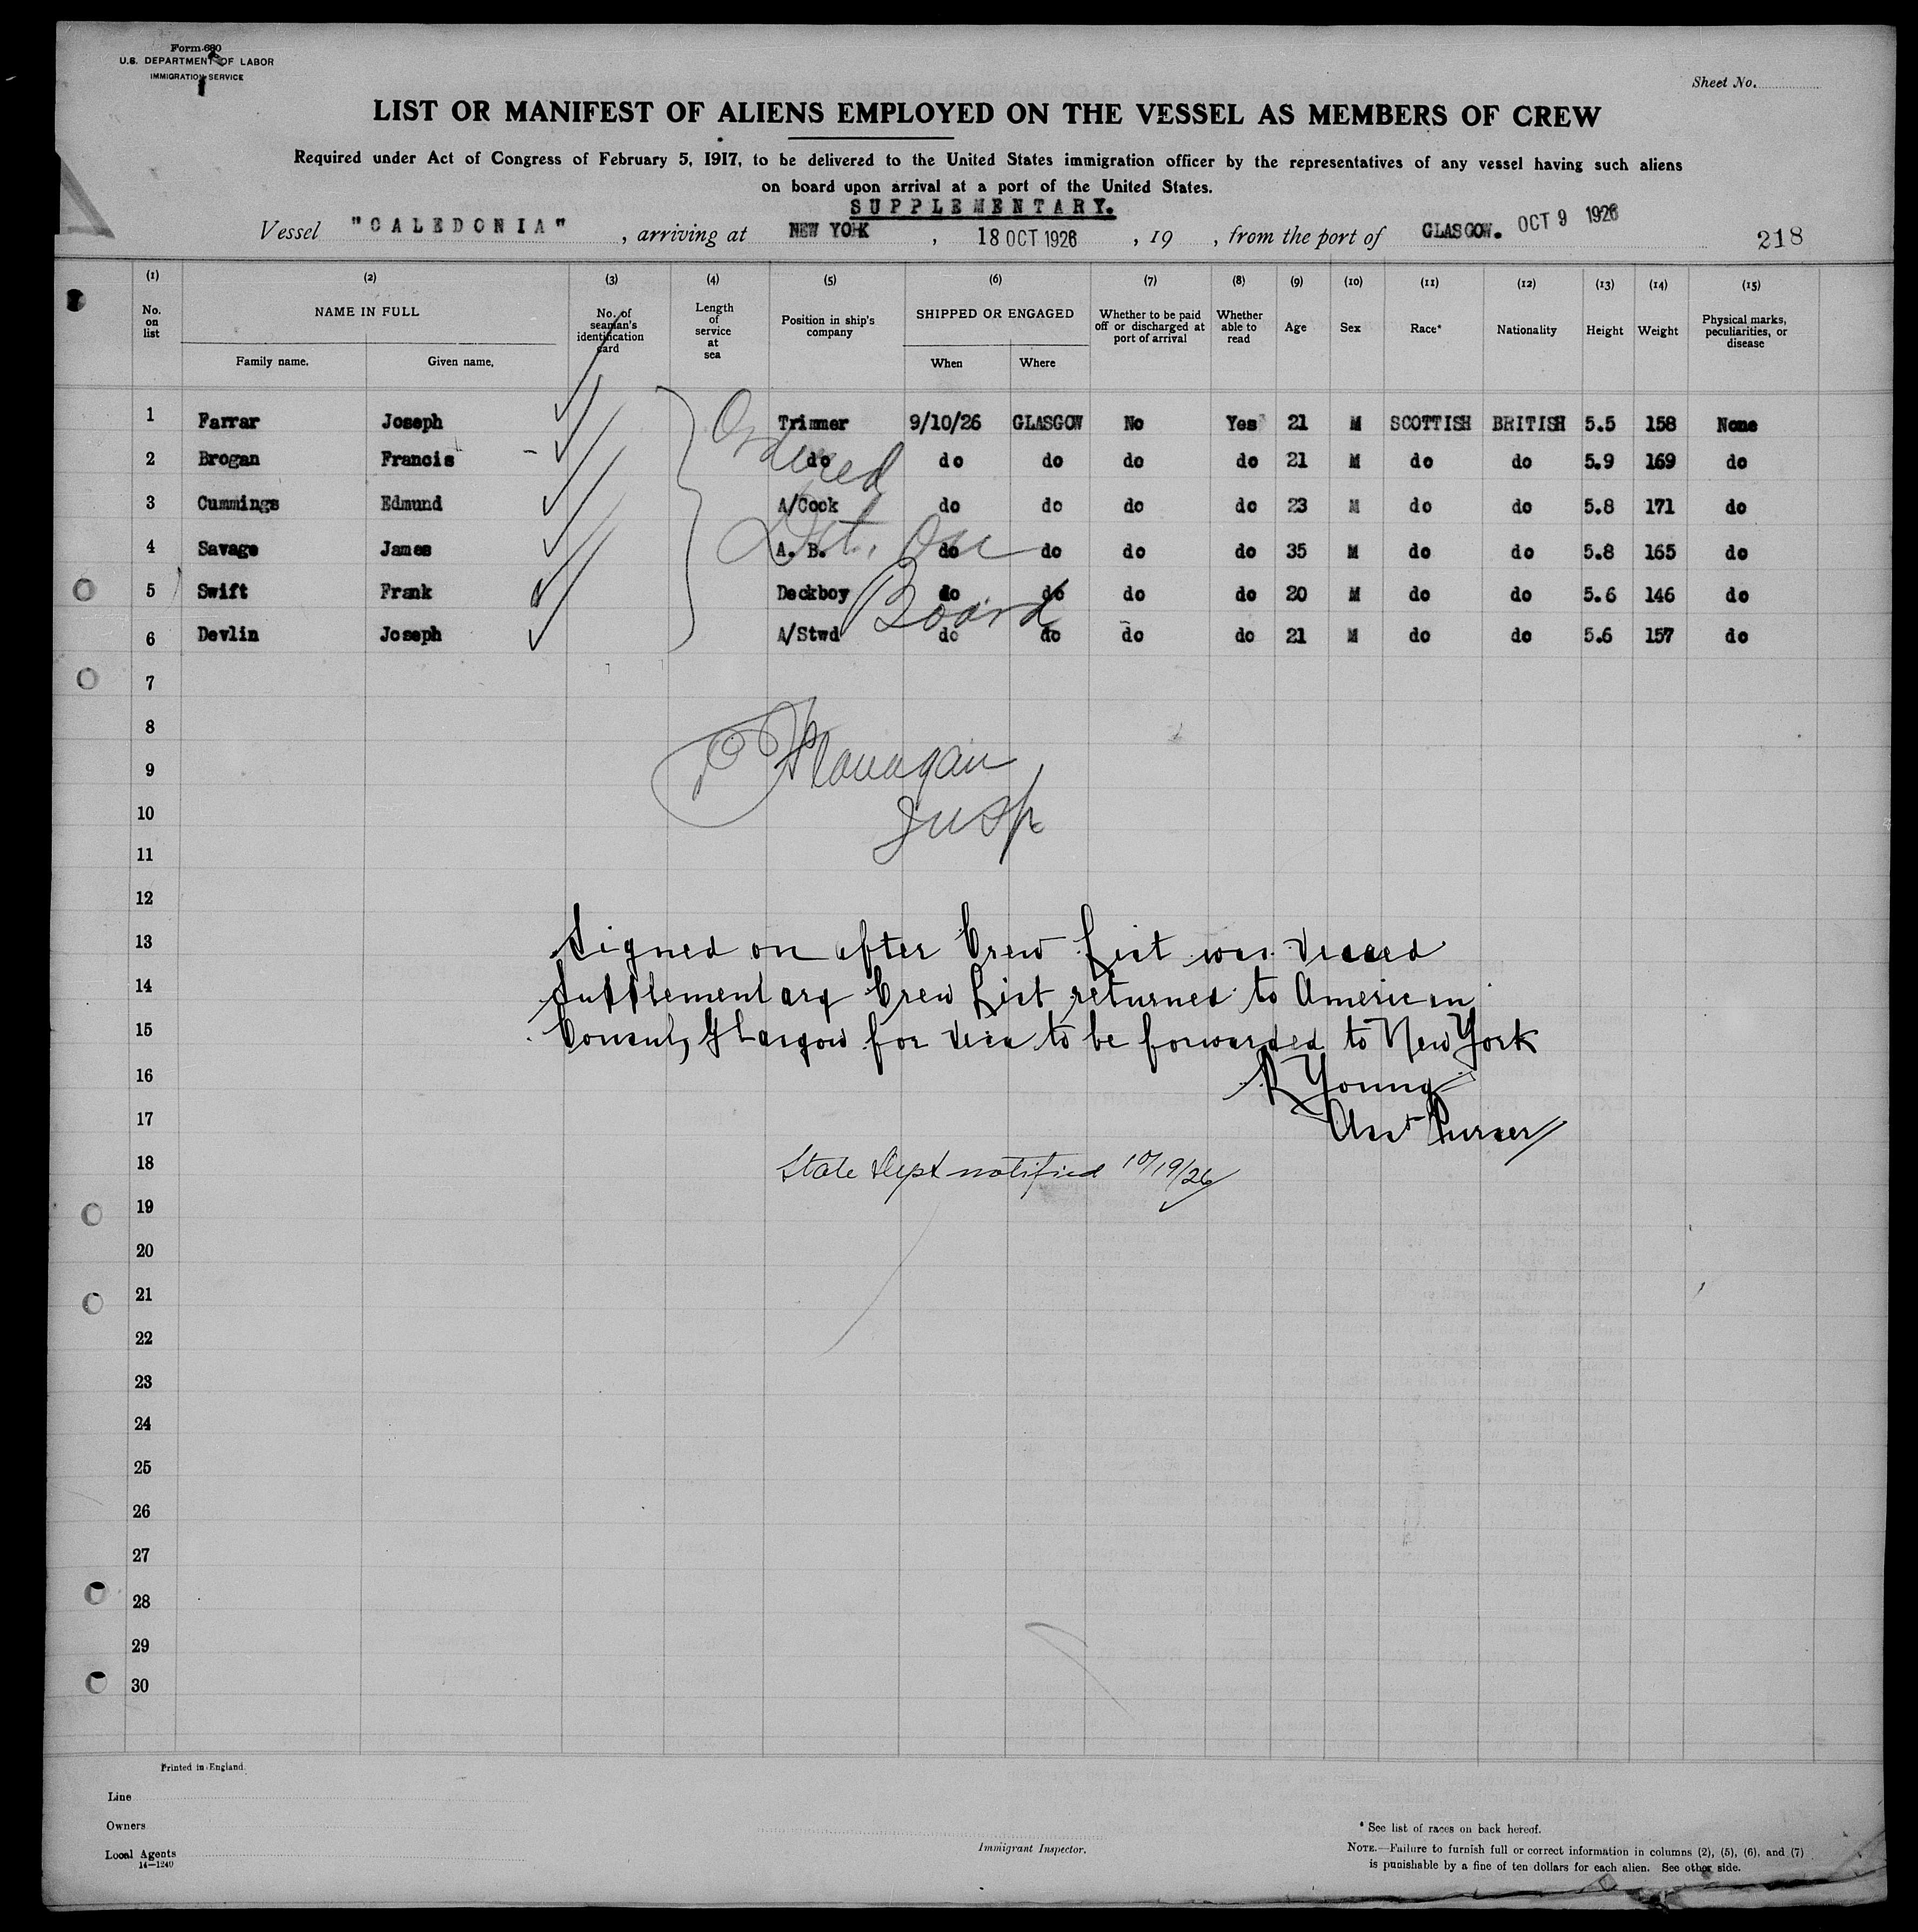 Form 680
U.S. DEPARTMENT OF LABOR
IMMIGRATION SERVICE
Sheet No.
LIST OR MANIFEST OF ALIENS EMPLOYED ON THE VESSEL AS MEMBERS OF CREW
Required under Act of Congress of February 5, 1917, to be delivered to the United States immigration officer by the representatives of any vessel having such aliens
on board upon arrival at a port of the United States.
SUPPLEMENTARY.
Vessel "CALEDONIA", arriving at NEW YORK, 18 OCT 1926, 19 , from the port of GLASGOW. OCT 9 1926 218
(1) (2) (3) (4) (5) (6) (7) (8) (9) (10) (11) (12) (13) (14) (15)
No. on list NAME IN FULL Family name. Given name, No. of seaman's identification card Length of service at sea Position in ship's company SHIPPED OR ENGAGED When Where Whether to be paid off or discharged at port of arrival Whether able to read Age Sex Race* Nationality Height Weight Physical marks, peculiarities, or disease
1 Farrar Joseph Trimmer 9/10/26 GLASGOW No Yes 21 M SCOTTISH BRITISH 5.5 158 None
2 Brogan Francis do do do do do 21 M do do 5.9 169 do
3 Cummings Edmund A/Cook do do do do 23 M do do 5.8 171 do
4 Savage James A. B. do do do do 35 M do do 5.8 165 do
5 Swift Frank Deckboy do do do do 20 M do do 5.6 146 do
6 Devlin Joseph A/Stwd do do do do 21 M do do 5.6 157 do
Ordered
Det. on
Board
7
8
Flanagan
9
Insp
10
11
12
13 Signed on after Crew List was visaed
14 Supplementary Crew List returned to American
15 Consul, Glasgow for visa to be forwarded to New York
16 R Young
17 Asst Purser
18 State Dept notified 10/19/26
19
20
21
22
23
24
25
26
27
28
29
30
Printed in England.
Line
Owners
Local Agents
14—1240
Immigrant Inspector.
* See list of races on back hereof.
NOTE.—Failure to furnish full or correct information in columns (2), (5), (6), and (7)
is punishable by a fine of ten dollars for each alien. See other side.